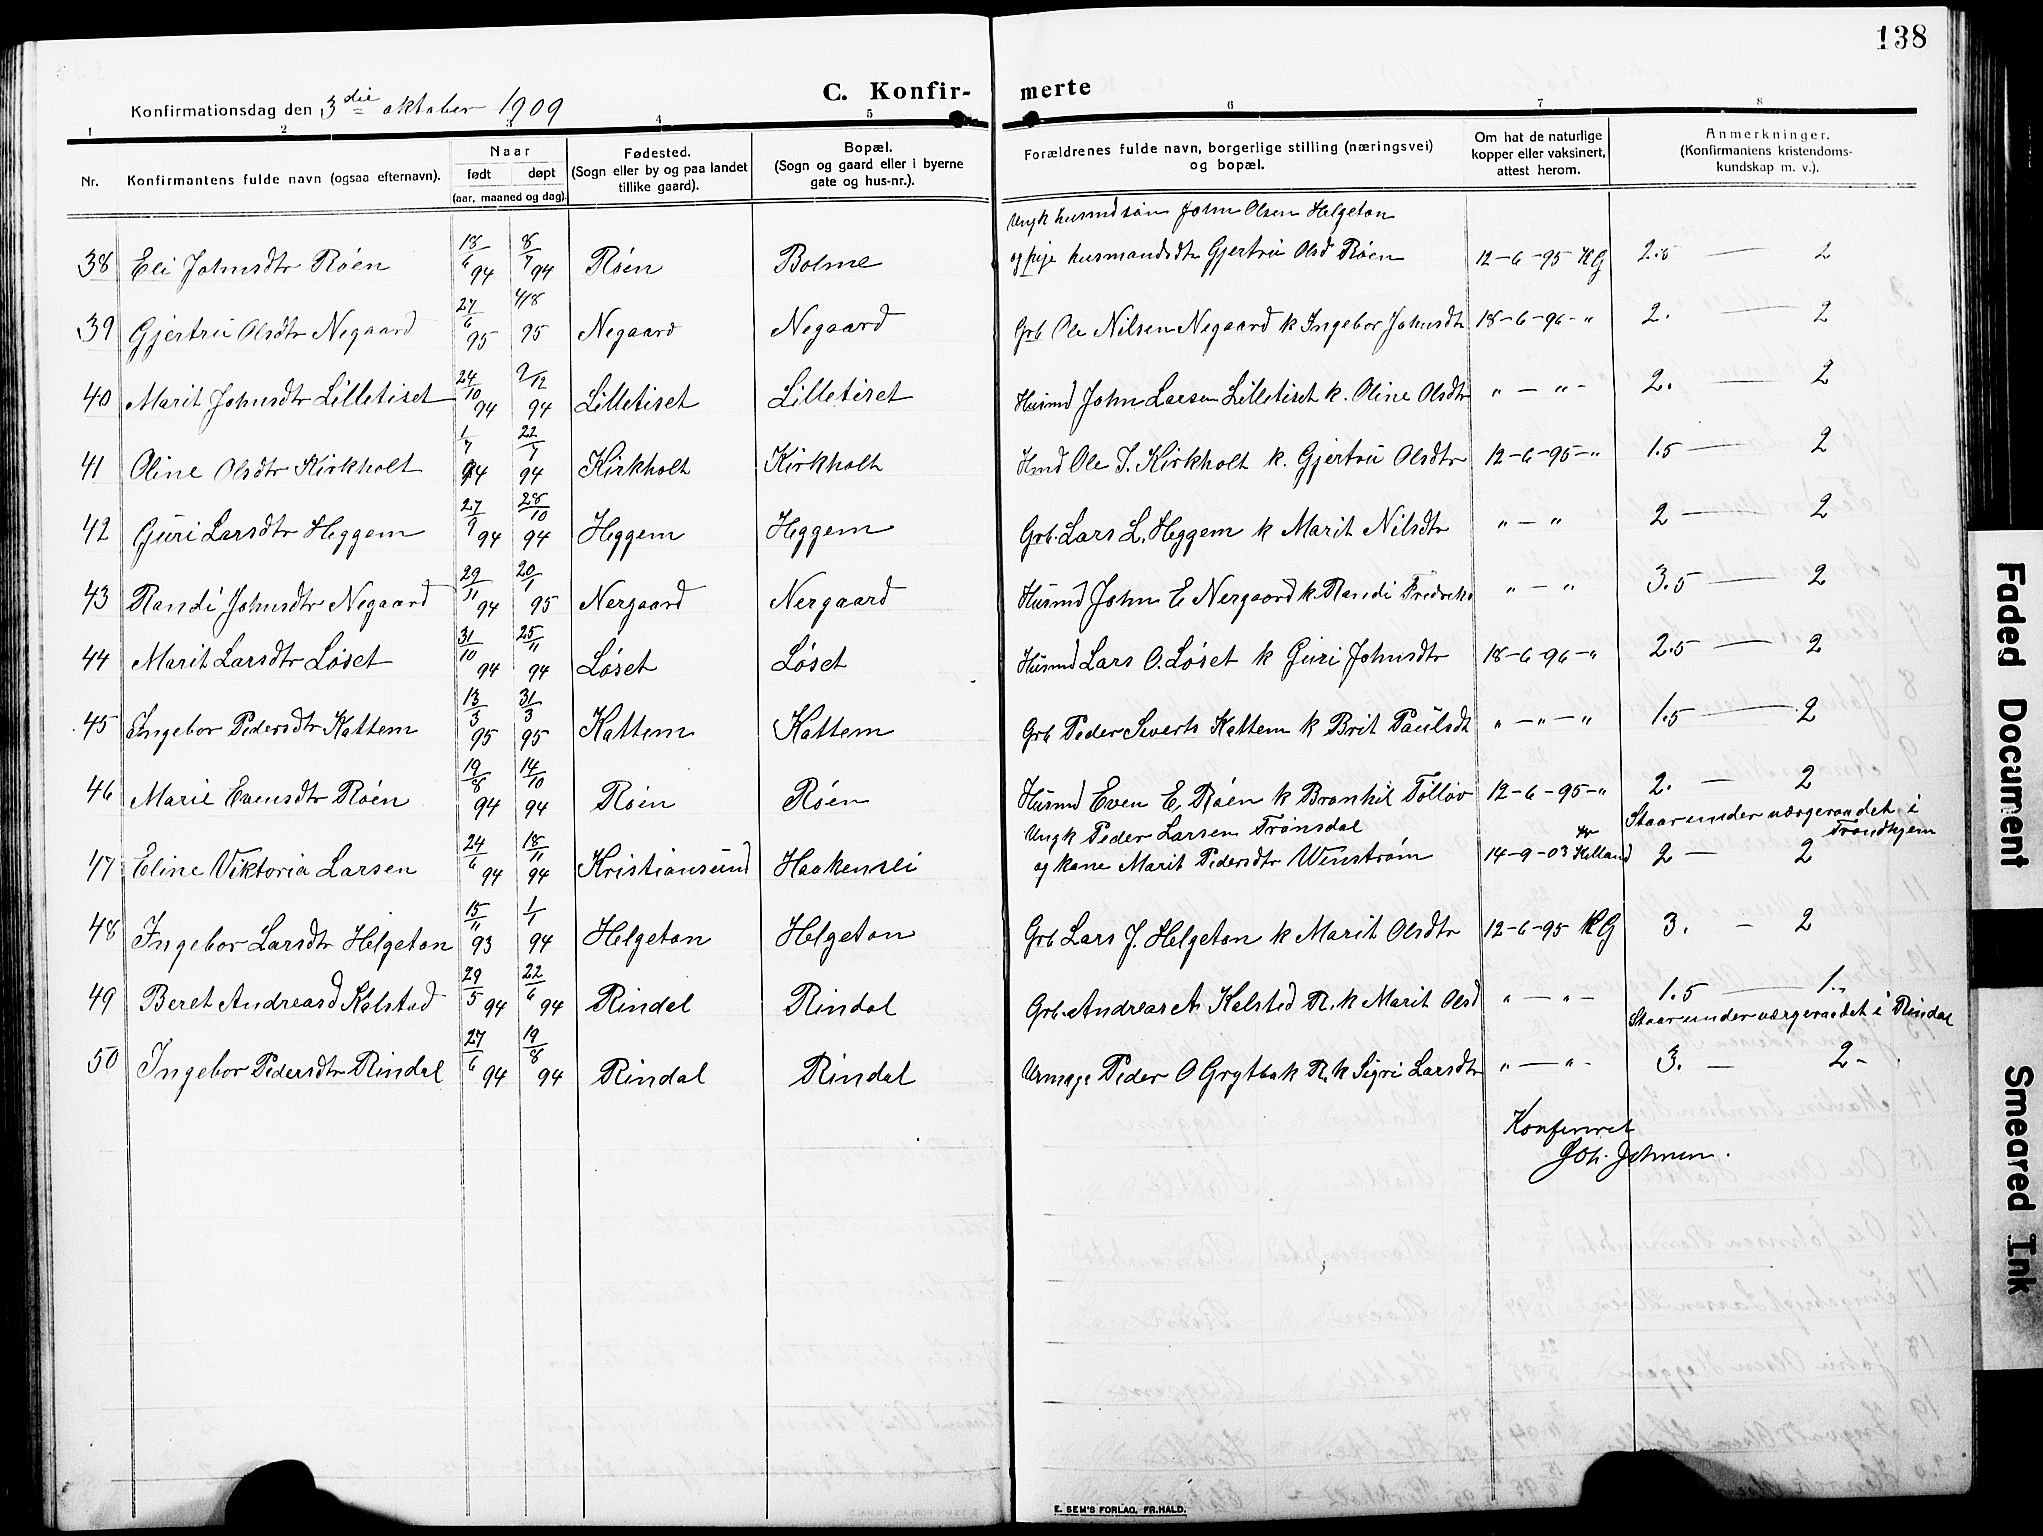 138
C. Konfir- merte
Konfirmationsdag den 3 die oktober 1909
1 2 3 4 5 6 7 8
Nr.
Konfirmantens fulde navn (ogsaa efternavn).
Naar
født døpt
(aar, maaned og dag).
Fødested.
(Sogn eller by og paa landet
tillike gaard).
Bopæl.
(Sogn og gaard eller i byerne
gate og hus-nr.).
Forældrenes fulde navn, borgerlige stilling (næringsvei)
og bopæl.
Om hat de naturlige
kopper eller vaksinert,
attest herom.
Anmerkninger.
(Konfirmantens kristendoms-
kundskap m. v.).
Ungk husmdsøn John Olsen Helgeton
38 Eli Johnsdtr Røen 18/6 94 8/7 94 Røen Bolme og pige husmandsdtr Gjertrü Olsd Røen 12-6-95 KG 2.5 — 2
39 Gjertrü Olsdtr Negaard 27/6 95 4/8 95 Negaard Negaard Grb Ole Nilsen Negaard k Ingebor Johnsdtr 18-6-96-" 2. — 2
40 Marit Johnsdtr Lilletiset 24/10 94 9/12 94 Lilletiset Lilletiset Husmd John Larsen Lilletiset k. Oline Olsdtr " — " - 2. — 2
41 Oline Olsdtr Kirkholt 1/7 94 22/7 94 Kirkholt Kirkholt Hmd Ole I. Kirkholt k. Gjertrü Olsdtr 12-6-95-" 1.5 — 2
42 Guri Larsdtr Heggem 27/9 94 28/10 94 Heggem Heggem Grb. Lars L. Heggem k Marit Nilsdtr " — " 2 — 2
43 Randi Johnsdtr Negaard 29/11 94 20/1 95 Nergaard Nergaard Husmd John E Nergaard k Randi " — " 3.5 — 2
44 Marit Larsdtr Løset 31/10 94 25/11 94 Løset Løset Husmd Lars O. Løset k Guri Johnsdtr 18-6-96-" 2.5 — 2
45 Ingebor Pedersdtr Kattem 13/3 95 31/3 95 Kattem Kattem Grb Peder Siverts Kattem k Brit Paulsdt " — " — " 1.5 — 2
46 Marie Evensdtr Røen 19/8 94 14/10 94 Røen Røen Husmd Even E. Røen k Bronhil 12-6-95-" 2. — 2
Ungk Peder Larsen Trønsdal Staar under værgeraadet i
Trondhjem
47 Eline Viktoria Larsen 24/6 94 18/11 94 Kristiansund Haakensli og kone Marit Pedersdtr Winstrøm 14-9-03 Kelland 2 — 2
48 Ingebor Larsdtr Helgeton 15/11 93 1/1 94 Helgeton Helgeton Grb Lars J. Helgeton k Marit Olsdtr 12-6-95 KG 3. - 2
49 Beret Andreasd Kalstad 29/5 94 22/6 94 Rindal Rindal Grb. Andreas A Kalstad R. k Marit Olsd " — " - 1.5 — 1.
Staar under værgeraadet i Rindal
50 Ingebor Pedersdtr Rindal 27/6 94 19/8 94 Rindal Rindal Urmagr Peder O Grytbak R. k Sigri Larsdtr " — " - 3. — 2 -
Konfereret
Joh. Johnsen.
E. SEM'S FORLAG, FR.HALD.
Faded Document
Smeared Ink